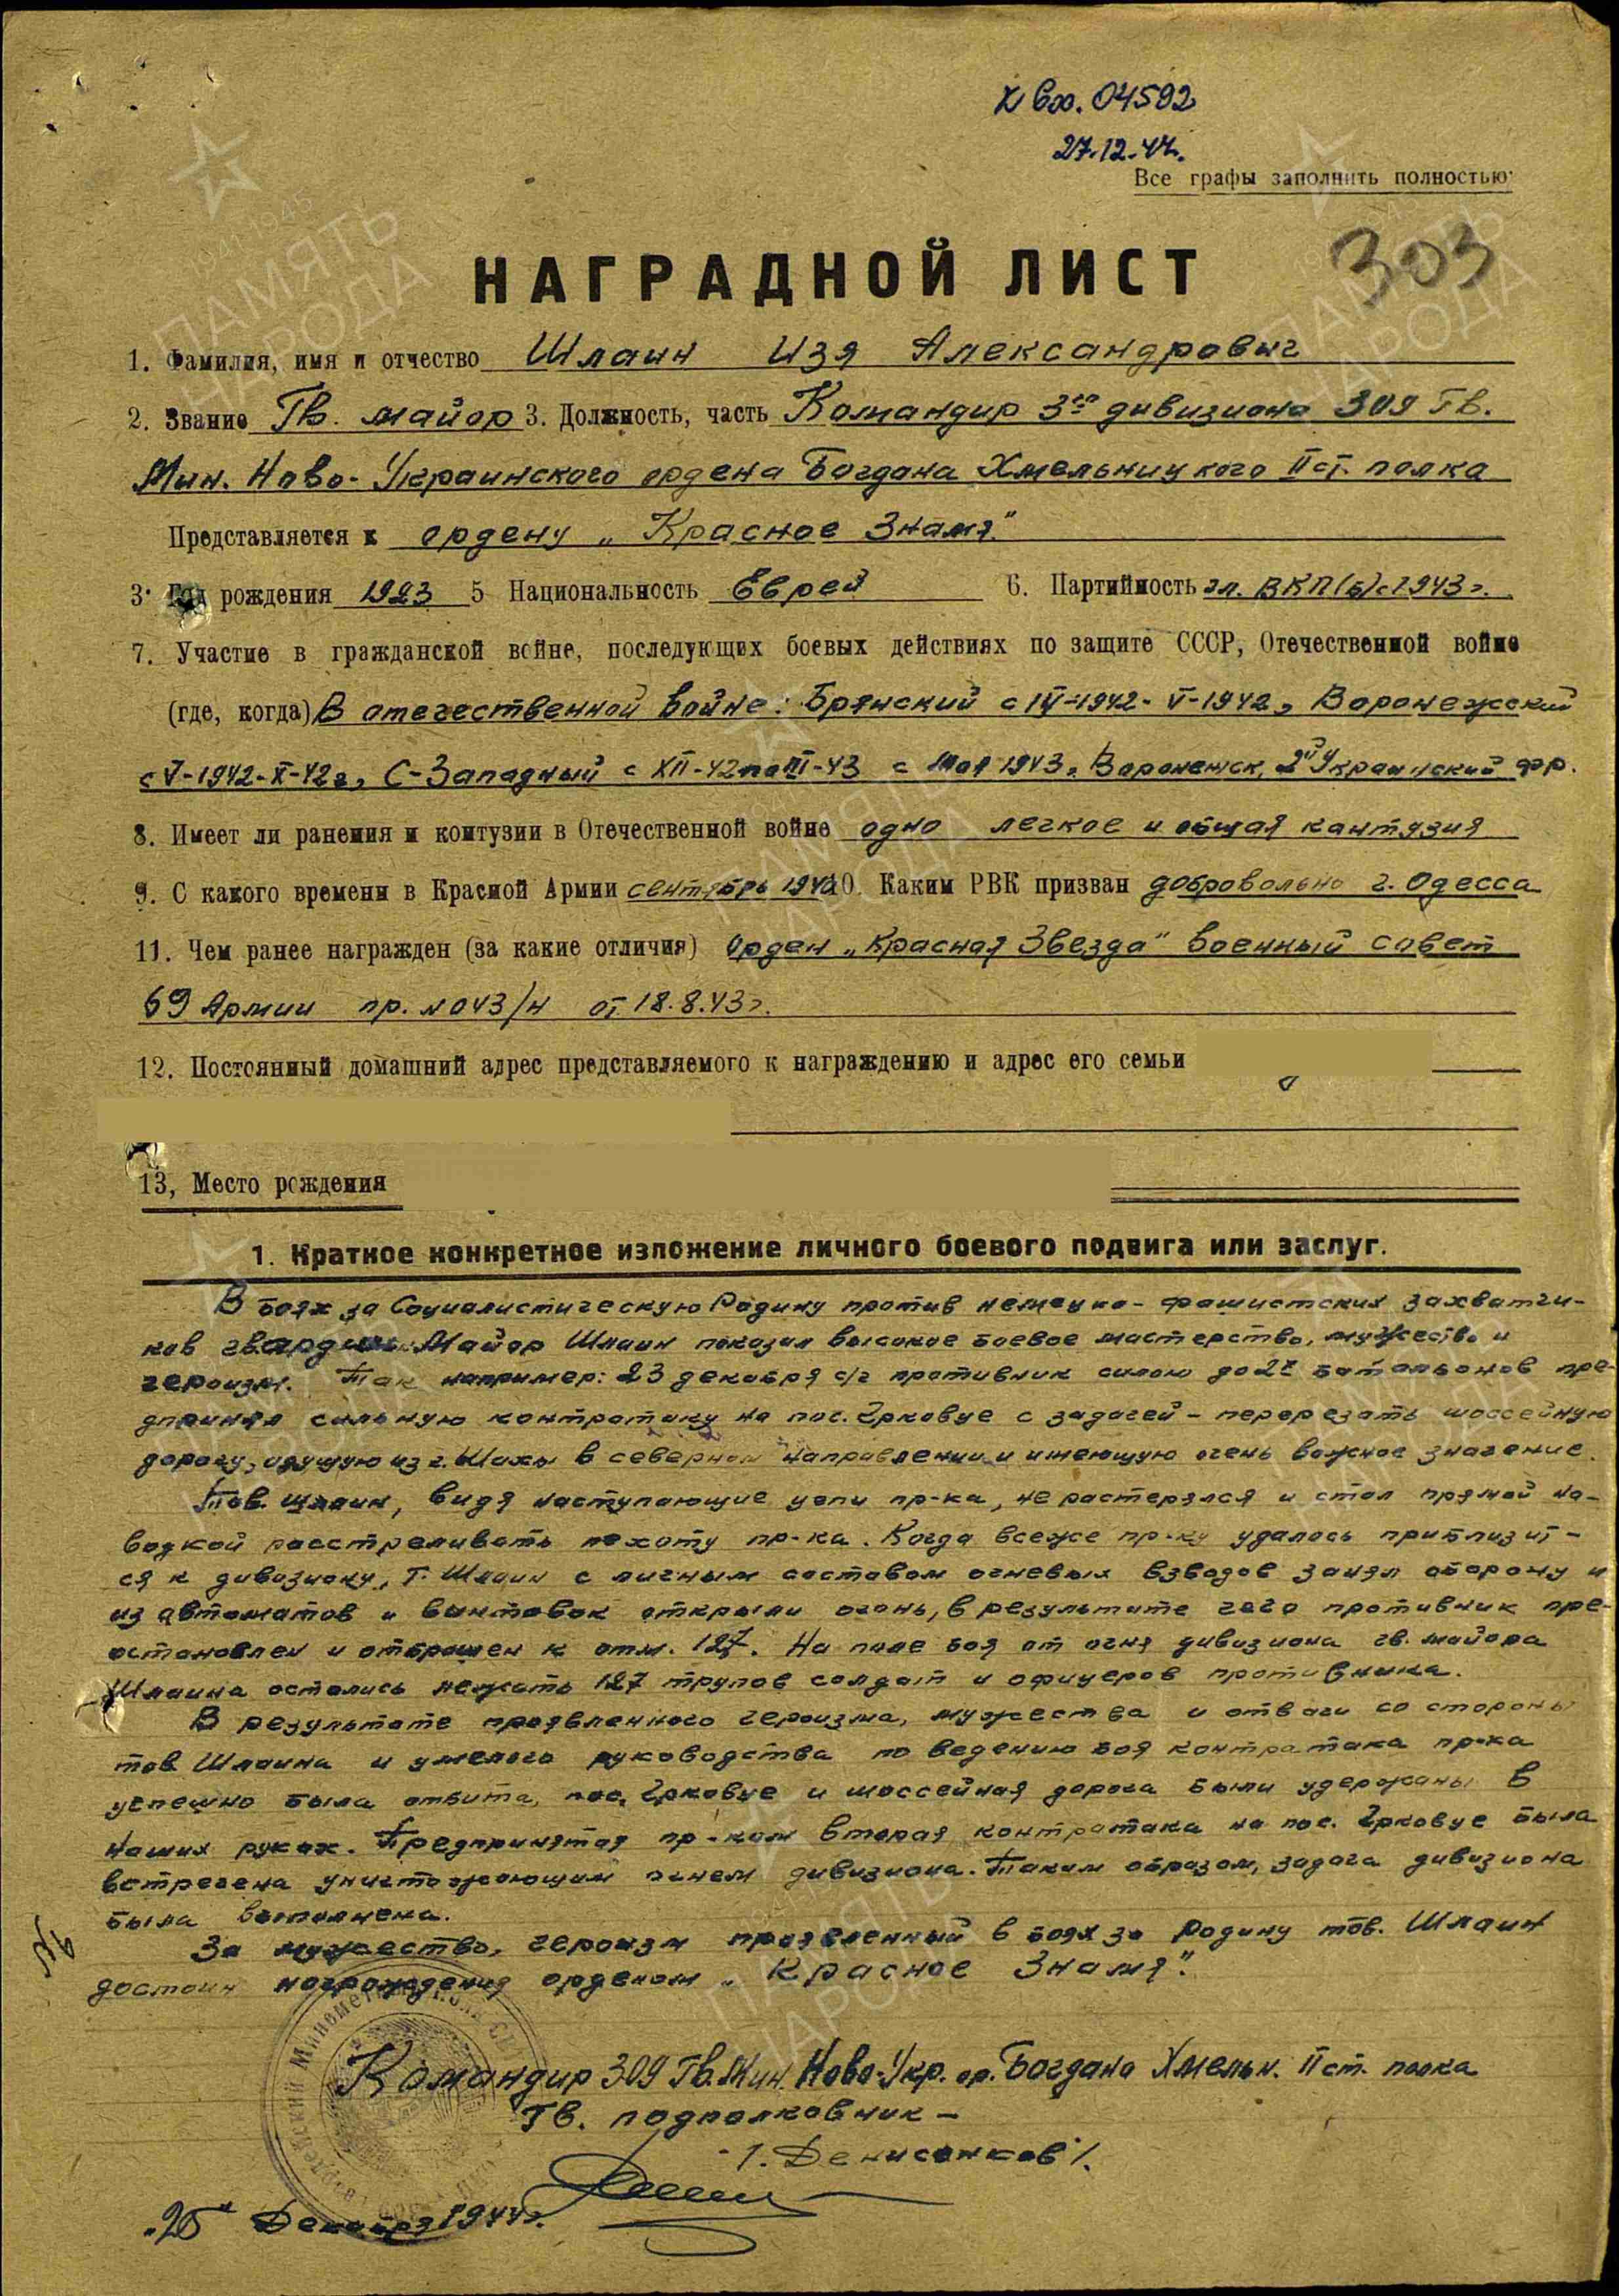 х Вх. 04592
27.12.44.
Все графы заполнить полностью
303
НАГРАДНОЙ ЛИСТ
1. Фамилия, имя и отчество Шлаин Изя Александрович
2. Звание Гв. майор 3. Должность, часть Командир 3го дивизиона 309 Гв.
Мин. Ново-Украинского ордена Богдана Хмельницкого II ст. полка
Представляется к ордену „Красное Знамя"
3. Год рождения 1923 5 Национальность Еврей 6. Партийность чл. ВКП(б) с 1943 г.
7. Участие в гражданской войне, последующих боевых действиях по защите СССР, Отечественной войне
(где, когда) В отечественной войне: Брянский с IV-1942-V-1942, Воронежский
с V-1942-X-42г, С-Западный с XII-42 по III-43 с мая 1943, Воронежск, 2й Украинский фр.
8. Имеет ли ранения и контузии в Отечественной войне одно легкое и общая кантузия
9. С какого времени в Красной Армии сентябрь 1940 10. Каким РВК призван добровольно г. Одесса
11. Чем ранее награжден (за какие отличия) орден „Красная Звезда" военный совет
69 Армии пр. № 043/н от 18.8.43г.
12. Постоянный домашний адрес представляемого к награждению и адрес его семьи
13, Место рождения
1. Краткое конкретное изложение личного боевого подвига или заслуг.
В боях за Социалистическую Родину против немецко-фашистских захватчи-
ков гвардии Майор Шлаин показал высокое боевое мастерство, мужество и
героизм. Так например: 23 декабря с/г противник силою до 2х батальонов пре-
дпринял сильную контратаку на пос. Эрковце с задачей - перерезать шоссейную
дорогу, идущую из г. Шахы в северном направлении и имеющую очень важное значение.
Тов. Шлаин, видя наступающие цепи пр-ка, не растерялся и стал прямой на-
водкой расстреливать пехоту пр-ка. Когда всеже пр-ку удалось приблизит-
ся к дивизиону, т. Шлаин с личным составом огневых взводов занял оборону и
из автоматов и винтовок открыли огонь, в результате чего противник пре-
остановлен и отброшен к отм. 127. На поле боя от огня дивизиона гв. майора
Шлаина остались лежать 127 трупов солдат и офицеров противника.
В результате проявленного героизма, мужества и отваги со стороны
тов Шлаина и умелого руководства по ведению боя контратака пр-ка
успешно была отбита, пос. Эрковце и шоссейная дорога были удержаны в
наших руках. Предпринятая пр-ком вторая контратака на пос. Эрковце была
встречена уничтожающим огнем дивизиона. Таким образом, задача дивизиона
была выполнена.
За мужество, героизм проявленный в боях за Родину тов. Шлаин
достоин награждения орденом „Красное Знамя".
Командир 309 Гв. Мин. Ново-Укр. ор. Богдана Хмельн. II ст. полка
Гв. подполковник -
/. Денисенков /.
„25" Декабря 1944г.
ПАМЯТЬ НАРОДА